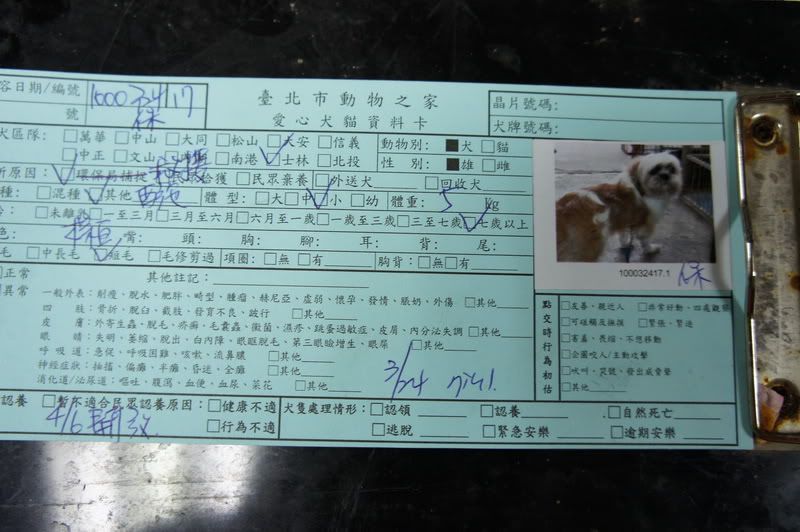 容日期/編號 1000324 17
臺北市動物之家
愛心犬貓資料卡
晶片號碼:
犬牌號碼:
號 保
犬區隊: □萬華 □中山 □大同 □松山 □大安 □信義
□中正 □文山 □南港 □士林 □北投
動物別: ■犬 □貓
性別: ■雄 □雌
所原因: □環保局捕捉 拾獲 □民眾棄養 □外送犬 □回收犬
種: □混種 □其他 西施 體型: □大 □中 □小 □幼 體重: 5 kg
□未離乳 □一至三月 □三月至六月 □六月至一歲 □一歲至三歲 □三至七歲 □七歲以上
色: 棕白 嘴: 頭: 胸: 腳: 耳: 背: 尾:
毛 □中長毛 □短毛 □毛修剪過 項圈: □無 □有 胸背: □無 □有
100032417.1 保
□正常 其他註記:
□異常 一般外表: 削瘦、脫水、肥胖、畸型、腫瘤、赫尼亞、虛弱、懷孕、發情、脹奶、外傷 □其他
四肢: 骨折、脫臼、截肢、發育不良、跛行 □其他
皮膚: 外寄生蟲、脫毛、疥癬、毛囊蟲、黴菌、濕疹、跳蚤過敏症、皮屑、內分泌失調 □其他
眼睛: 失明、萎縮、脫出、白內障、眼眶脫毛、第三眼瞼增生、眼屎 □其他
呼吸道: 急促、呼吸困難、咳嗽、流鼻膿 □其他
神經症狀: 抽搐、偏癱、半癱、昏迷、全癱 □其他
消化道/泌尿道: 嘔吐、腹瀉、血便、血尿、菜花 □其他
3/24
點交時行為初估
□友善、親近人 □非常好動、四處觀察
□可碰觸及撫摸 □緊張、緊迫
□害羞、畏縮、不想移動
□企圖咬人/主動攻擊
□吠叫、哭號、發出威脅聲
□其他
認養 □暫不適合民眾認養原因: □健康不適
□行為不適
4/6
犬隻處理情形: □認領 □認養 □自然死亡
□逃脫 □緊急安樂 □逾期安樂